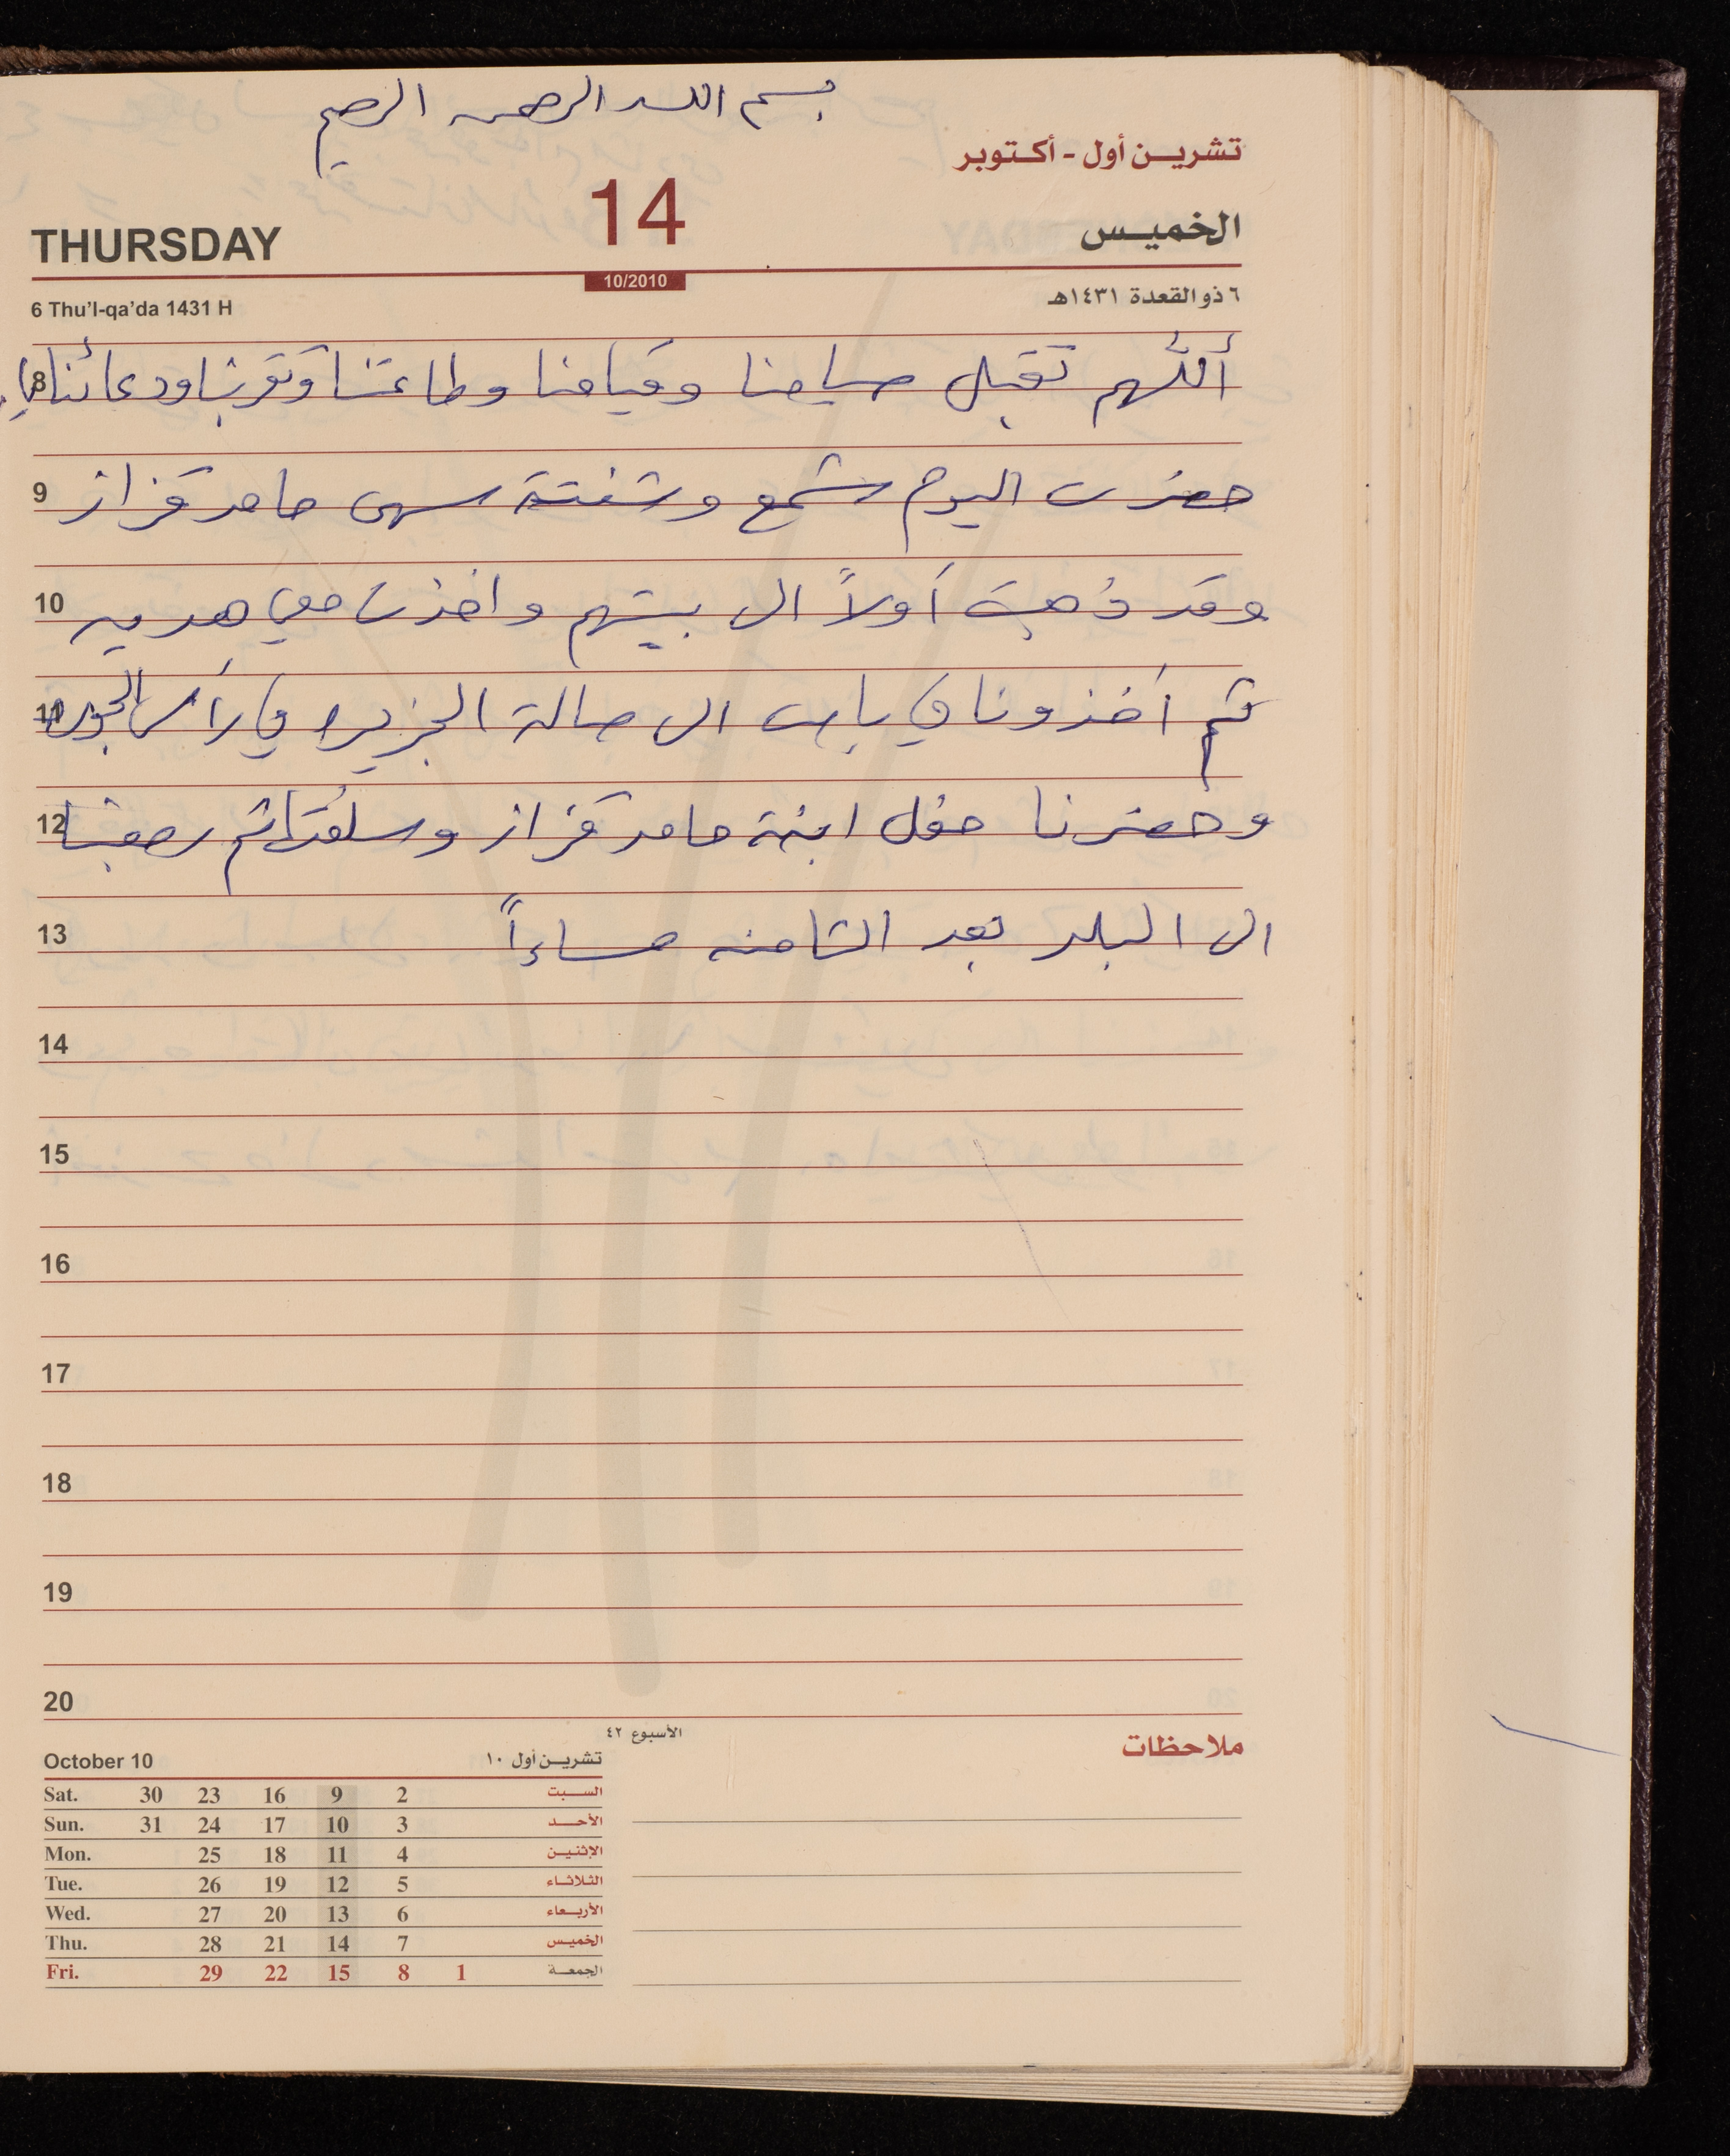 بسم الله الرحمن الرحيم
تشرين أول - أكتوبر
THURSDAY 14 الخميس
10/2010
6 Thu'l-qa'da 1431 H ٦ ذو القعدة ١٤٣١هـ
أللّهم تقبل صيامنا وقيامنا وطاعتنا وتقربنا ودعائنا
8
حضرت اليوم شمع وشنتة سهى حامد قزاز
9
وقد ذهبت أولاً الى بيتهم واخذت معي هديه
10
ثم أخذونا في باص الى صالة الجزيره في رأس الجوره
11
وحضرنا حفل ابنة حامد قزاز وسلفتها ثم رجعنا
12
الى البلد بعد الثامنه مساءاً
13
14
15
16
17
18
19
20
الأسبوع ٤٢
ملاحظات
October 10 تشرين أول ١٠
Sat. 30 23 16 9 2 السبت
Sun. 31 24 17 10 3 الأحد
Mon. 25 18 11 4 الإثنين
Tue. 26 19 12 5 الثلاثاء
Wed. 27 20 13 6 الأربعاء
Thu. 28 21 14 7 الخميس
Fri. 29 22 15 8 1 الجمعة